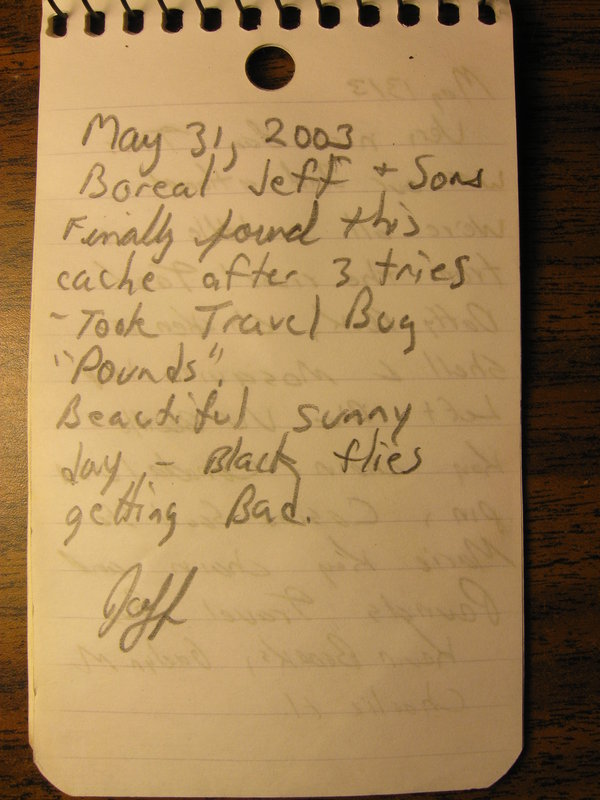 May 31, 2003
Boreal Jeff + Sons
Finally found this
cache after 3 tries
- Took Travel Bug
"Pounds".
Beautiful sunny
day, - Black flies
getting Bad.
Jeff